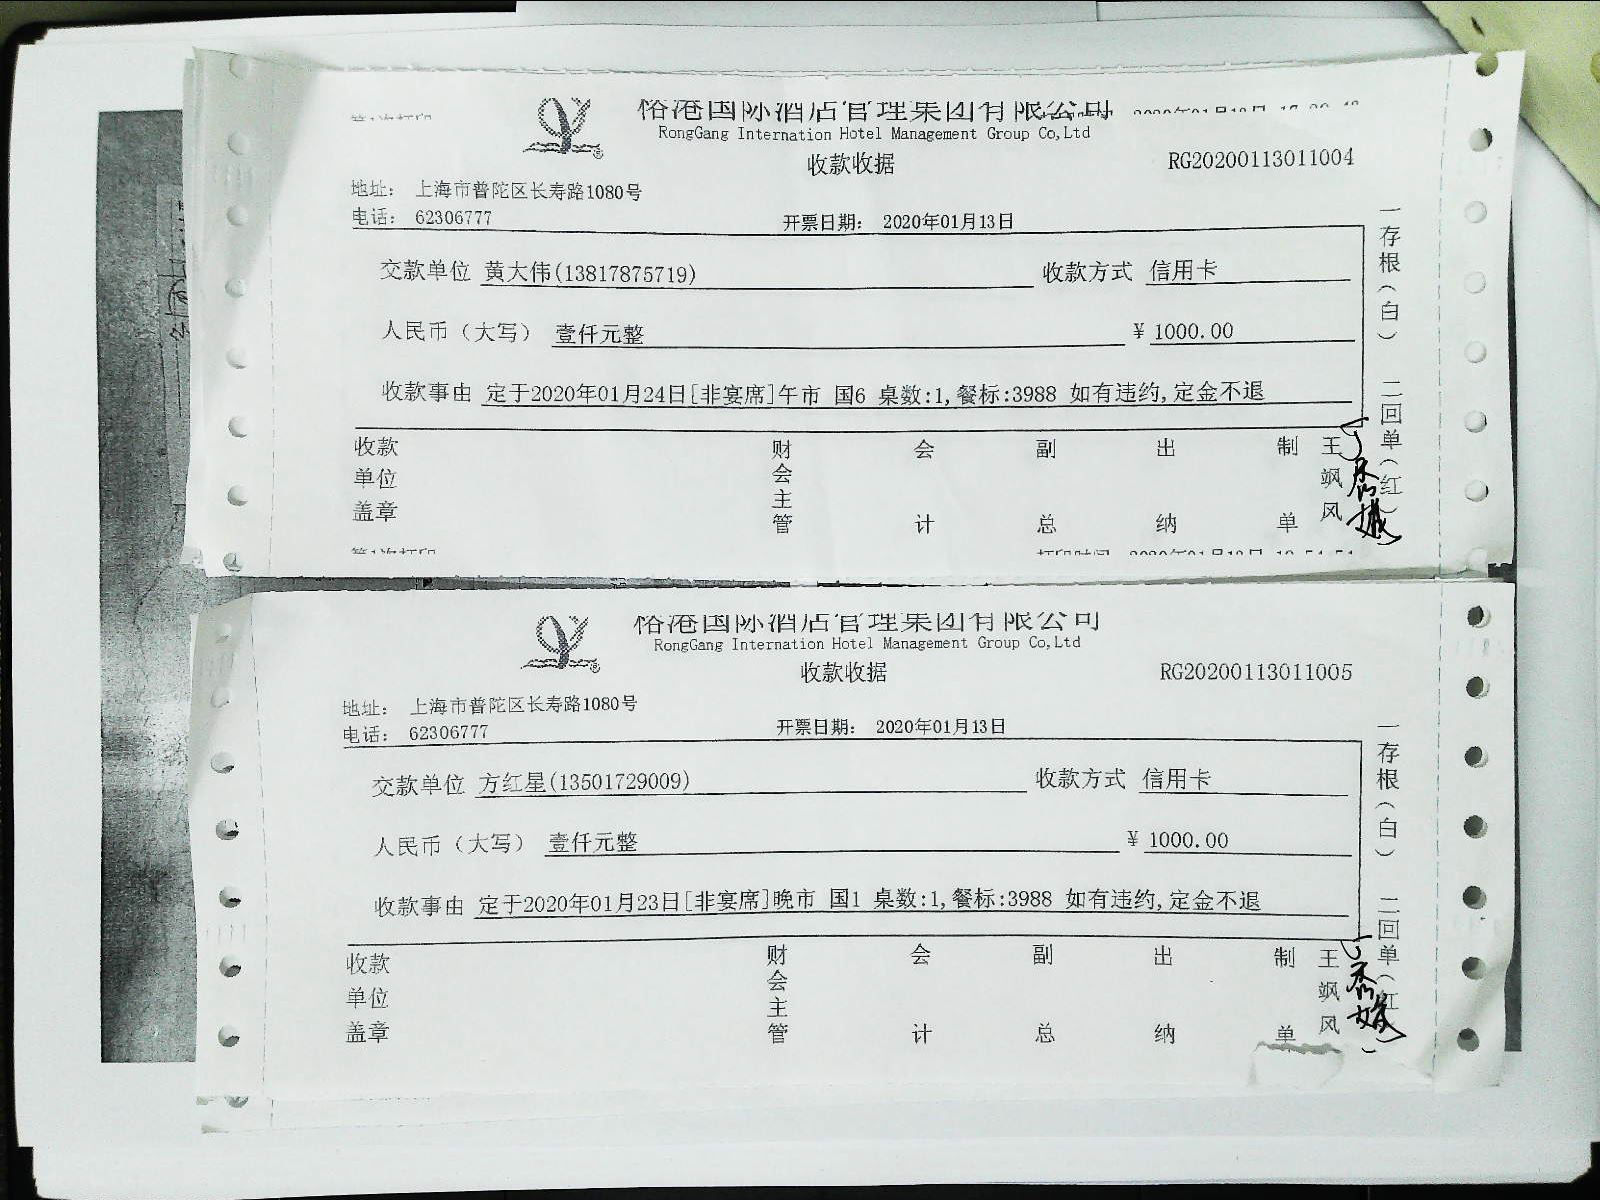 裕港国际酒店管理集团有限公司
RongGang Internation Hotel Management Group Co,Ltd
收款收据
RG20200113011004
地址： 上海市普陀区长寿路1080号
电话： 62306777
开票日期： 2020年01月13日
交款单位 黄大伟(13817875719) 收款方式 信用卡
人民币（大写） 壹仟元整 ¥ 1000.00
收款事由 定于2020年01月24日[非宴席]午市 国6 桌数:1,餐标:3988 如有违约,定金不退
收款单位盖章 财会主管 会计 副总 出纳 制单 王飒风
一存根（白） 二回单（红）
裕港国际酒店管理集团有限公司
RongGang Internation Hotel Management Group Co,Ltd
收款收据
RG20200113011005
地址： 上海市普陀区长寿路1080号
电话： 62306777
开票日期： 2020年01月13日
交款单位 方红星(13501729009) 收款方式 信用卡
人民币（大写） 壹仟元整 ¥ 1000.00
收款事由 定于2020年01月23日[非宴席]晚市 国1 桌数:1,餐标:3988 如有违约,定金不退
收款单位盖章 财会主管 会计 副总 出纳 制单 王飒风
一存根（白） 二回单（红）